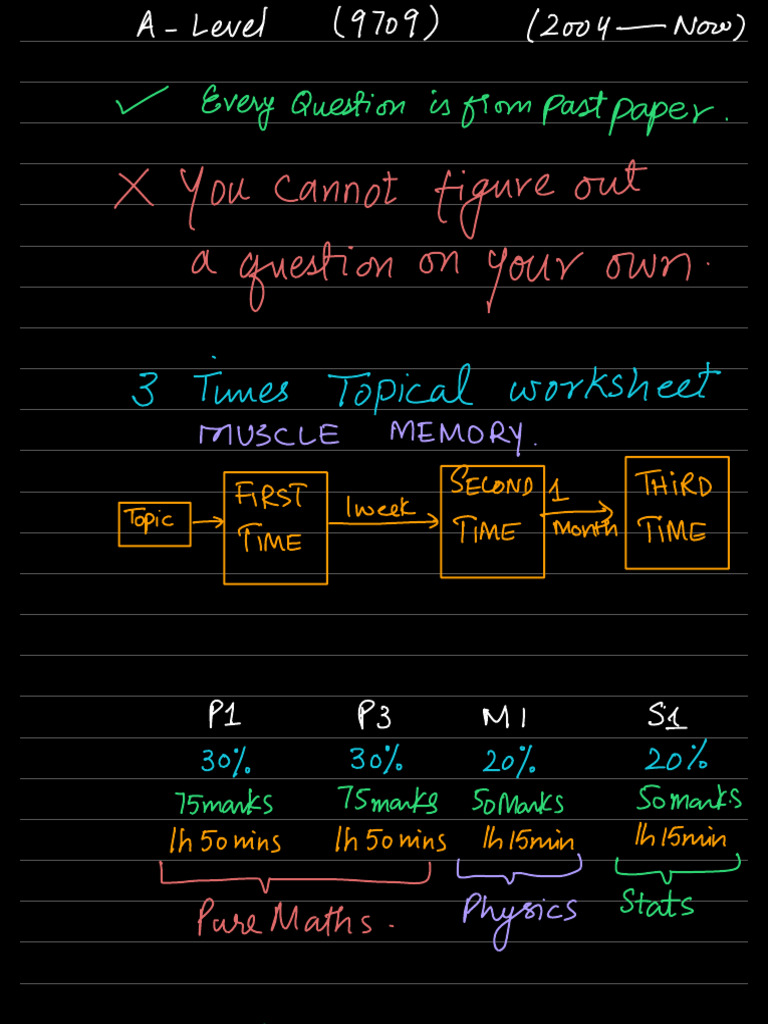 A-Level (9709) (2004 — Now)
✓ Every Question is from past paper.
X You cannot figure out
a question on your own.
3 Times Topical worksheet
MUSCLE MEMORY.
Topic → FIRST TIME → 1 week → SECOND TIME → 1 Month → THIRD TIME
P1 P3 M1 S1
30% 30% 20% 20%
75 marks 75 marks 50 Marks 50 marks
1h 50 mins 1h 50 mins 1h 15min 1h 15min
Pure Maths. Physics Stats